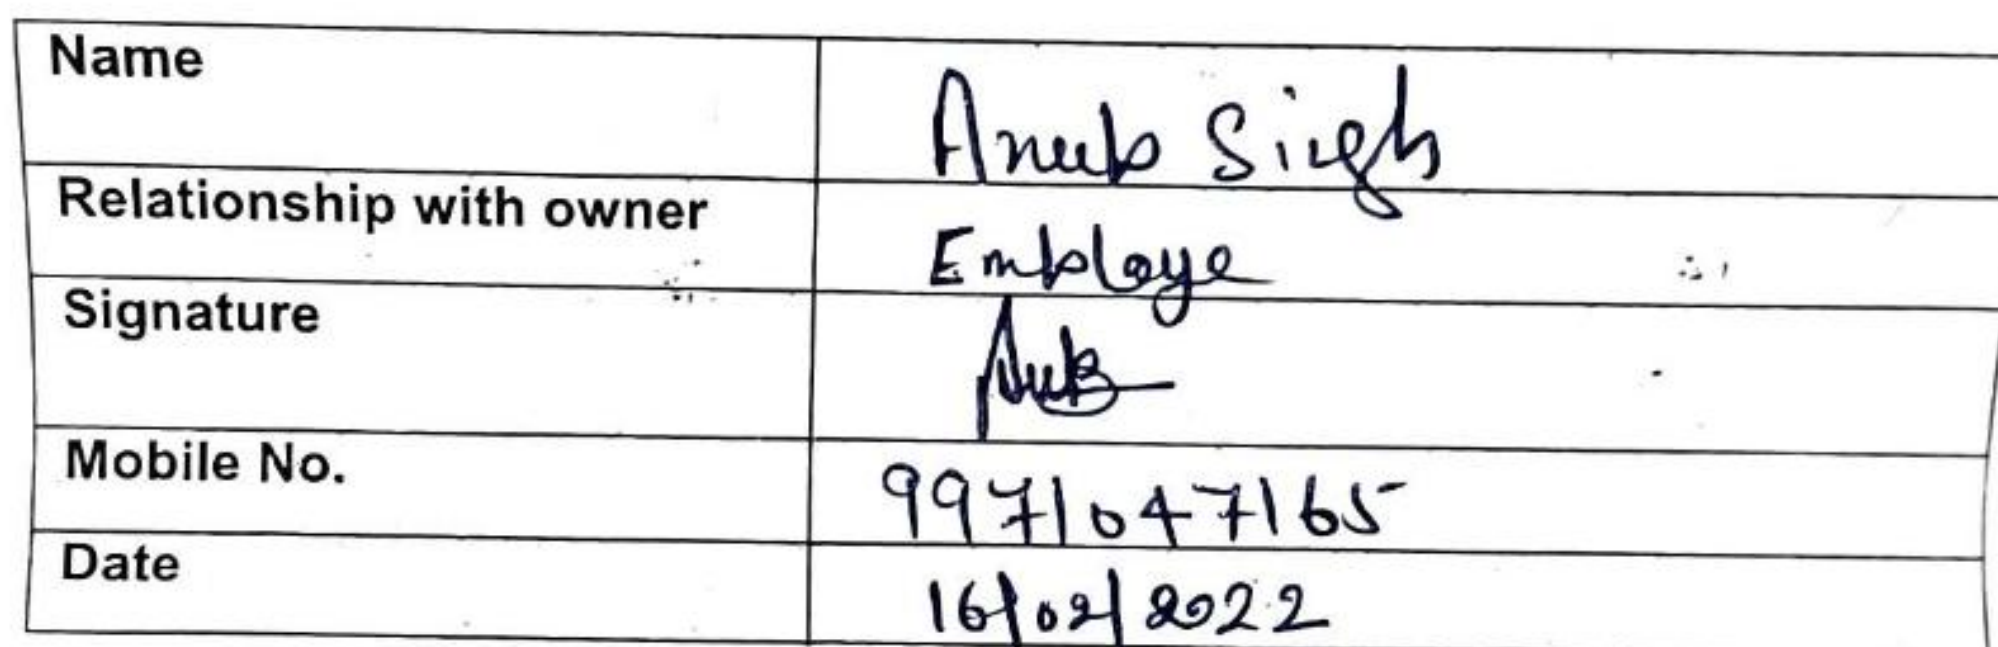 Name Anup Singh
Relationship with owner Employe
Signature
Mobile No. 9971047165
Date 16/02/2022